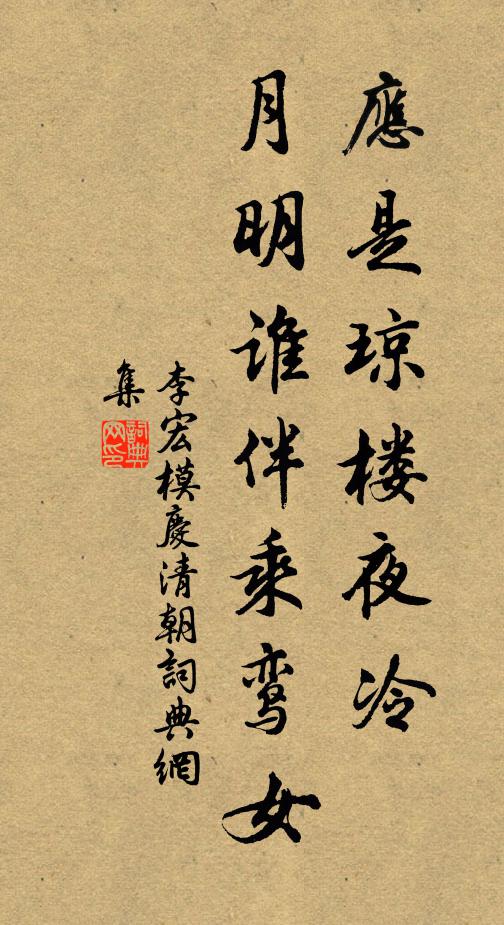 應是琼楼夜冷
月明谁伴乘鸾女
李宏模慶清朝詞典網
集
詞典
网印